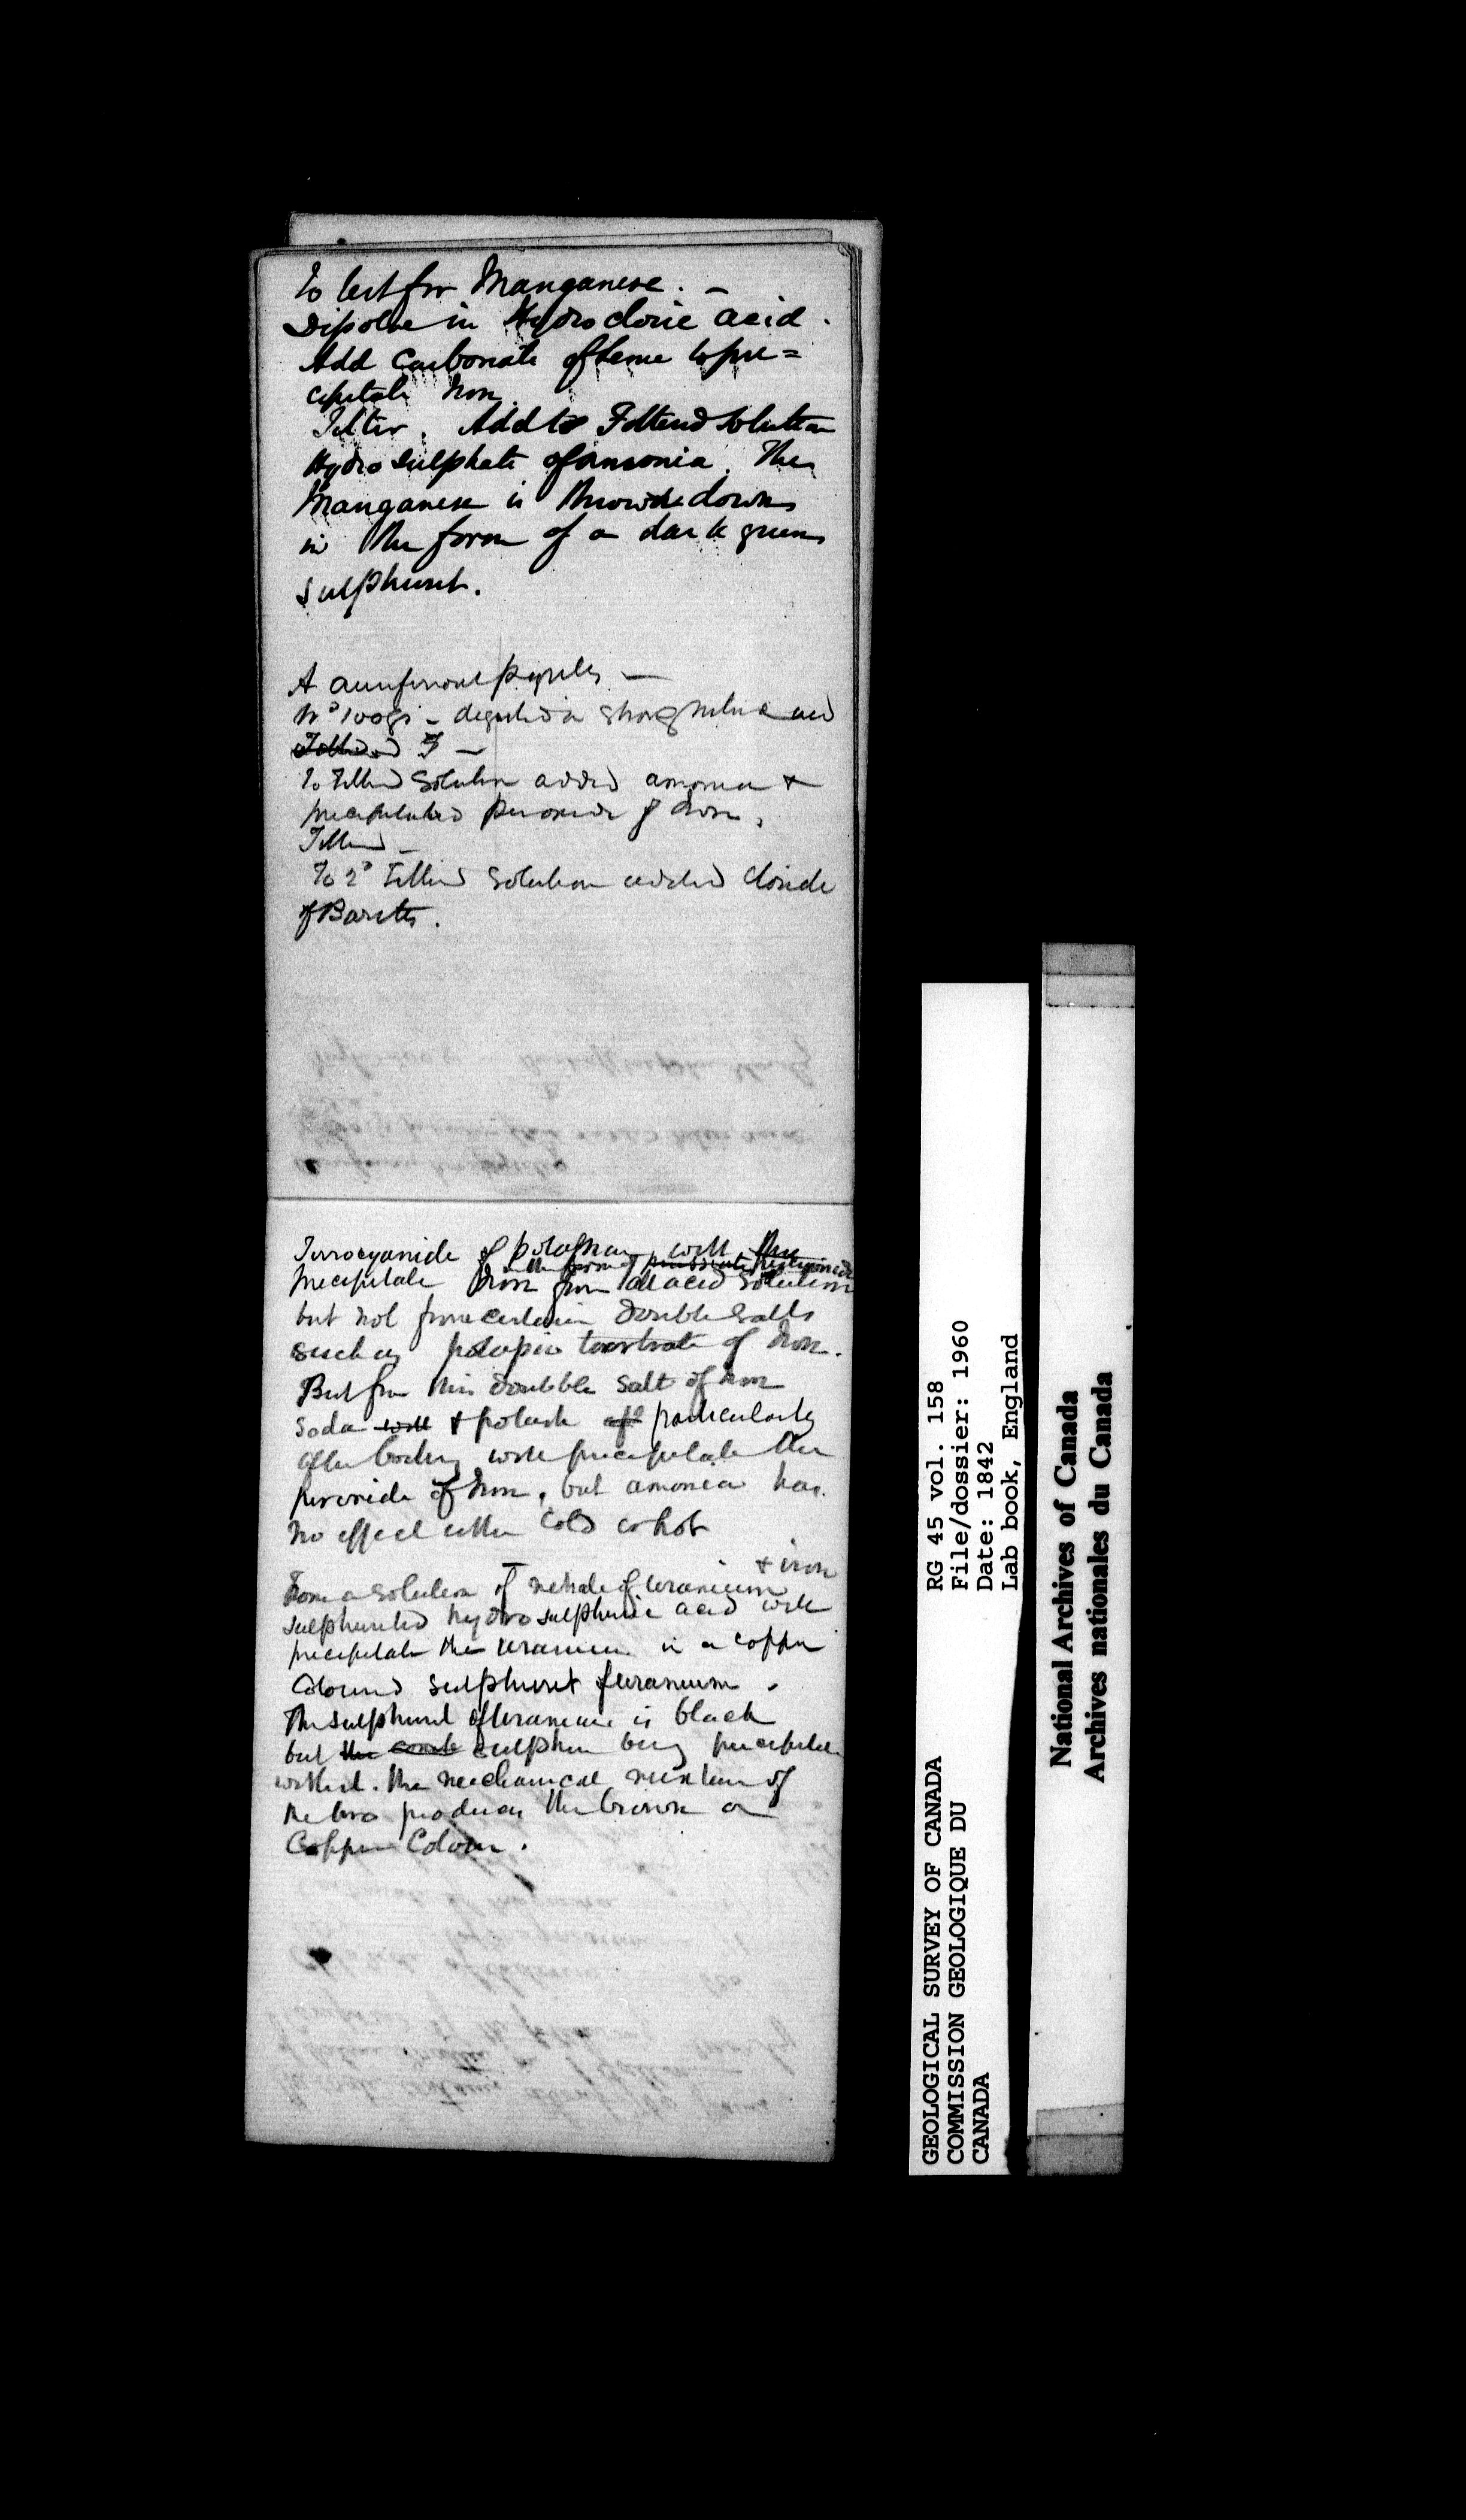 To test for Manganese. —
Dissolve in Hydrocloric acid.
Add Carbonate of lime to pre=
cipitate Iron.
Filter. Add to Filtered solution
Hydrosulphate of amonia. The
Manganese is thrown down
in the form of a dark green
sulphuret.
A auriferous pyrites —
No 100 gr — digested in strong nitric acid
Filtered F —
To Filtered solution added amonia &
precipitated peroxide of Iron.
Filtered —
To 2d Filtered solution added cloride
of Barytes.
Ferrocyanide of potassium will thr
in the form of prussiate
precipitate Iron from all acid solutions
but not from certain double salts
such as potassio tartrate of Iron.
But from this doubble salt of Iron
soda will & potash aft particularly
after boiling will precipitate the
peroxide of Iron, but amonia has
no effect either cold or hot
—
& iron
From a solution of nitrate of uranium
sulphureted hydrosulphuric acid will
precipitate the uranium in a copper
coloured sulphuret of uranium.
The sulphuret of uranium is black
but the sulphur being precipitated
with it. the mechanical mixture of
the two produces the brown or
Copper Colour.
RG 45 vol. 158
File/dossier: 1960
Date: 1842
Lab book, England
GEOLOGICAL SURVEY OF CANADA
COMMISSION GEOLOGIQUE DU
CANADA
National Archives of Canada
Archives nationales du Canada